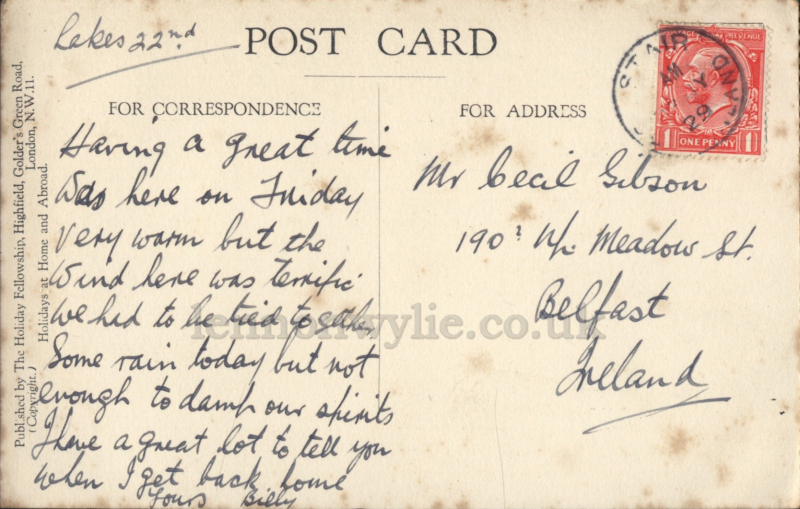 Lakes 22nd
POST CARD
FOR CORRESPONDENCE
Having a great time
Was here on Friday
Very warm but the
Wind here was terrific
We had to be tied together
Some rain today but not
enough to damp our spirits
I have a great lot to tell you
when I get back home
Yours Billy
FOR ADDRESS
Mr Cecil Gibson
190 Meadow St.
Belfast
Ireland
Published by The Holiday Fellowship, Highfield, Golder's Green Road,
London, N.W.11.
(Copyright.) Holidays at Home and Abroad.
ONE PENNY
1 1
STAIR
29
lennonwylie.co.uk